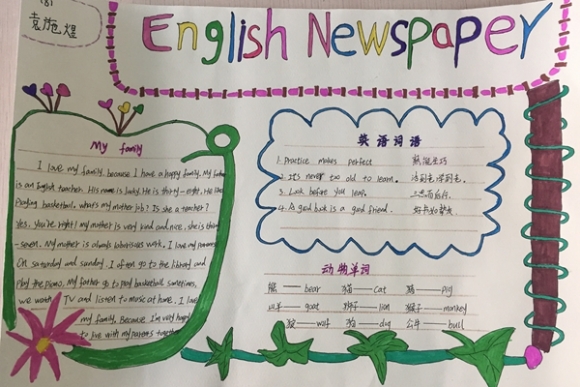 181
袁艳煜
English Newspaper
My family
I love my family, because I have a happy family. My father
is an English teacher. His name is Jack. He is thirty-eight. He likes
playing basketball. What's my mother job? Is she a teacher?
Yes, you're right! my mother is very kind and nice, she is thirty
-seven. My mother is always laborious work. I love my parents.
On saturday and sunday. I often go to the library and
play the piano. My father go to play basketball sometimes,
we watch TV and listen to music at home. I love
my family. Because I'm very happy
to live with my parents together
英语词语
1. Practice makes perfect 熟能生巧
2. It's never too old to learn. 活到老学到老
3. Look before you leap. 三思而后行
4. A good book is a good friend. 好书如挚友
动物单词
熊——bear 猫——cat 猪——pig
山羊——goat 狮子——lion 猴子——monkey
狼——wolf 狗——dog 公牛——bull